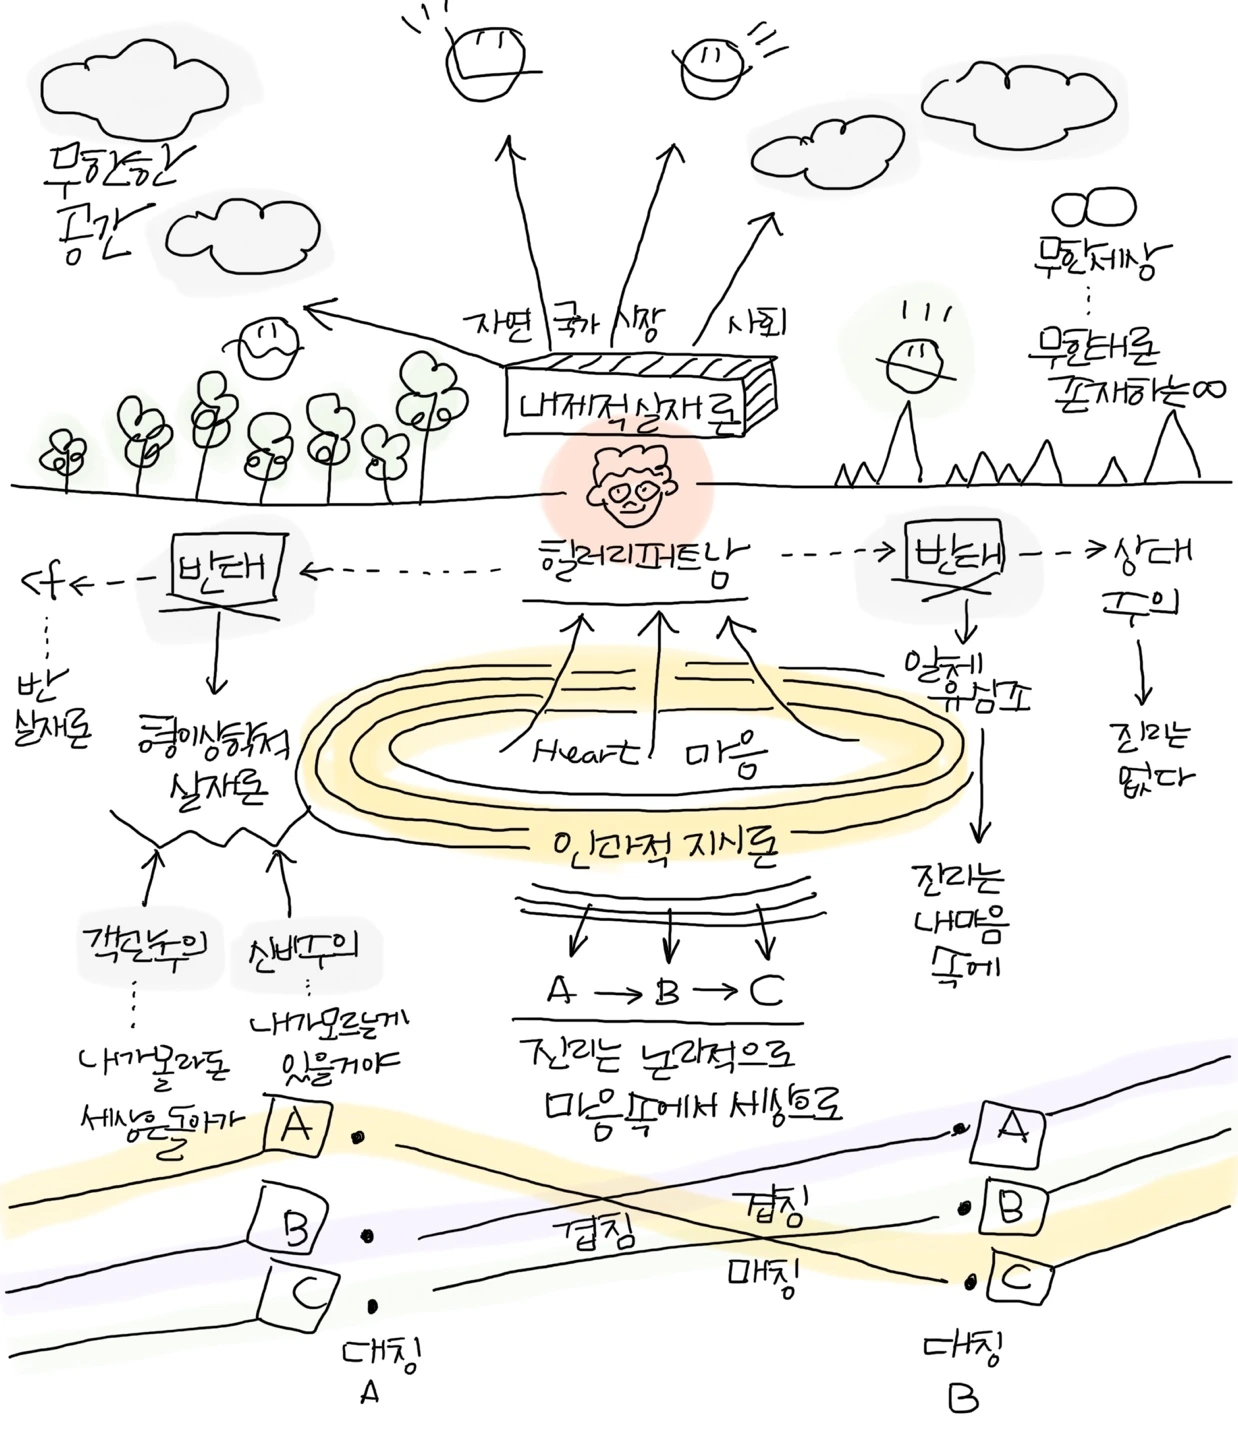 무한한
공간
무한세상
무한대로
존재하는∞
자연 국가 시장 사회
내재적실재론
힐러리퍼트남
반대
반대
상대
주의
반
실재론
형이상학적
실재론
일체
유심조
진리는
없다
Heart 마음
인과적 지시론
진리는
내마음
속에
객관주의
신비주의
내가몰라도
세상은돌아가
내가모르는게
있을거야
A → B → C
진리는 논리적으로
마음속에서 세상으로
A
B
C
겹침
겹침
매칭
A
B
C
대칭
A
대칭
B